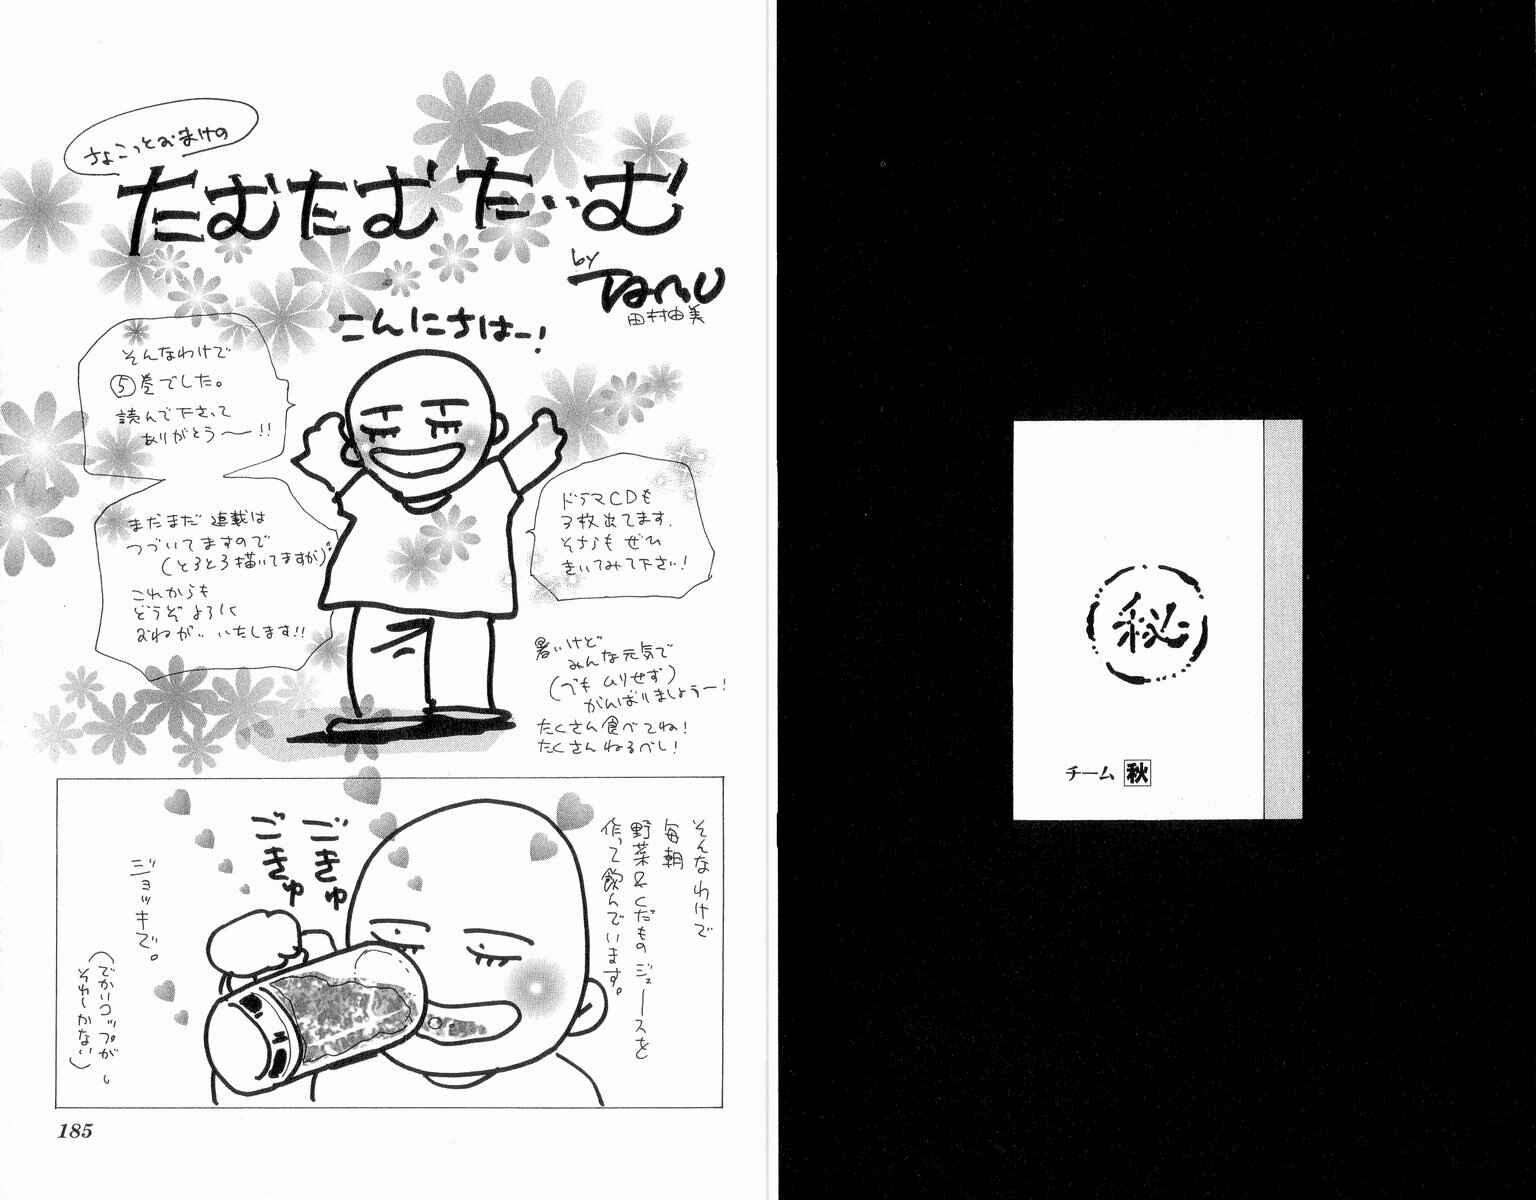 秘
チーム 秋
ちょこっとおまけの
たむたむたいむ!
by Tamu
田村由美
こんにちはー!
そんなわけで
⑤巻でした。
読んで下さって
ありがとう〜!!
まだまだ 連載は
つづいてますので
(とろとろ描いてますが)
これからも
どうぞ よろしく
おねがいいたします!!
ドラマCDも
3枚出てます。
そちらも ぜひ
きいてみて下さい!
暑いけど
みんな元気で
(でも ムリせず)
がんばりましょうー!
たくさん食べてね!
たくさんねるべし!
そんなわけで
毎朝
野菜&くだものジュースを
作って飲んでいます。
ごきゅ
ごきゅ
ジョッキで。
(でかいコップが
それしかない)
185